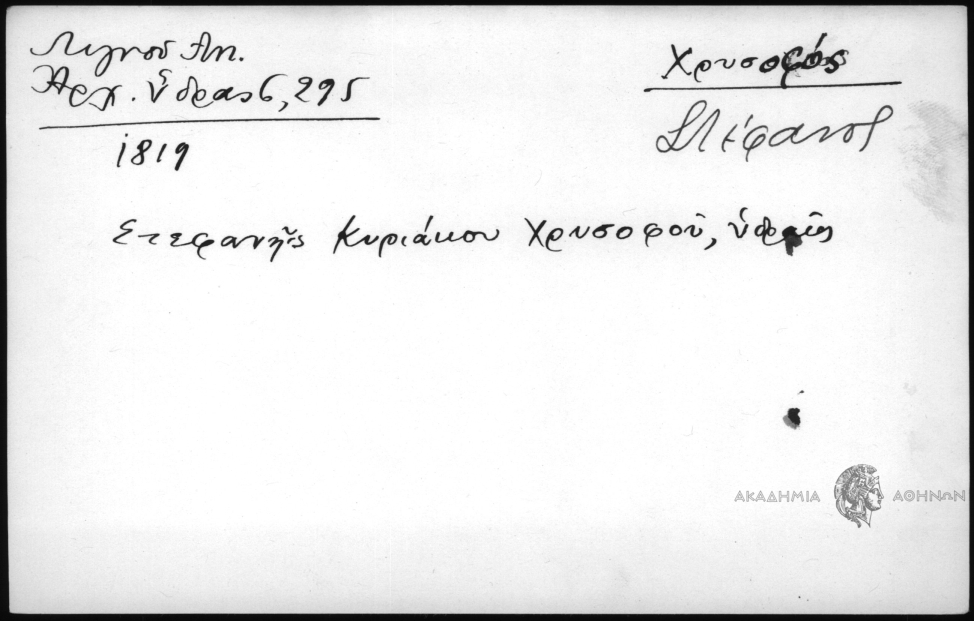 Λιγνοῦ Ἀπ.
Ἀρχ. Ὕδρας 6, 295
1819
Χρυσοφός
Στέφανος
Στεφανῆς Κυριάκου Χρυσοφοῦ, ὑδραῖος
ΑΚΑΔΗΜΙΑ ΑΘΗΝΩΝ